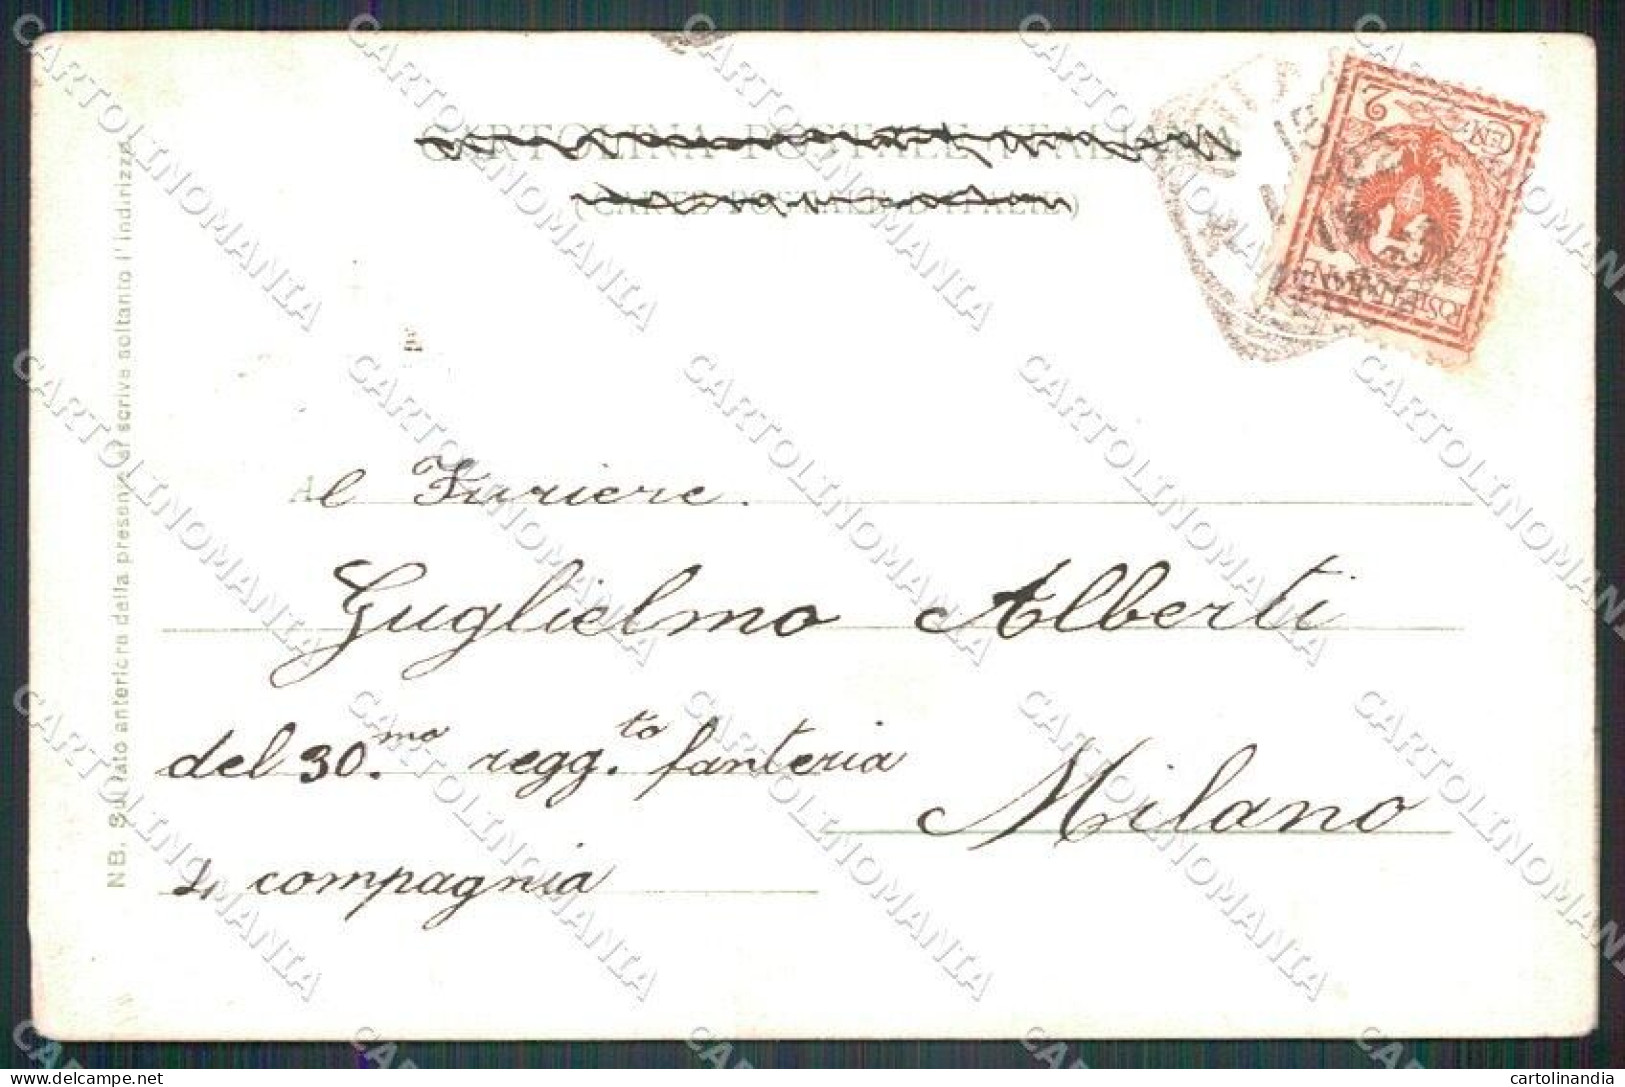 CARTOLINA POSTALE ITALIANA
(CARTE POSTALE D'ITALIE)
2
CENT
POSTE ITALIANE
NB. Sul lato anteriore della presente si scrive soltanto l'indirizzo
Al Furiere.
Guglielmo Alberti
del 30.mo regg.to fanteria
Milano
4 compagnia
CARTOLINOMANIA
delcampe.net
cartolinandia